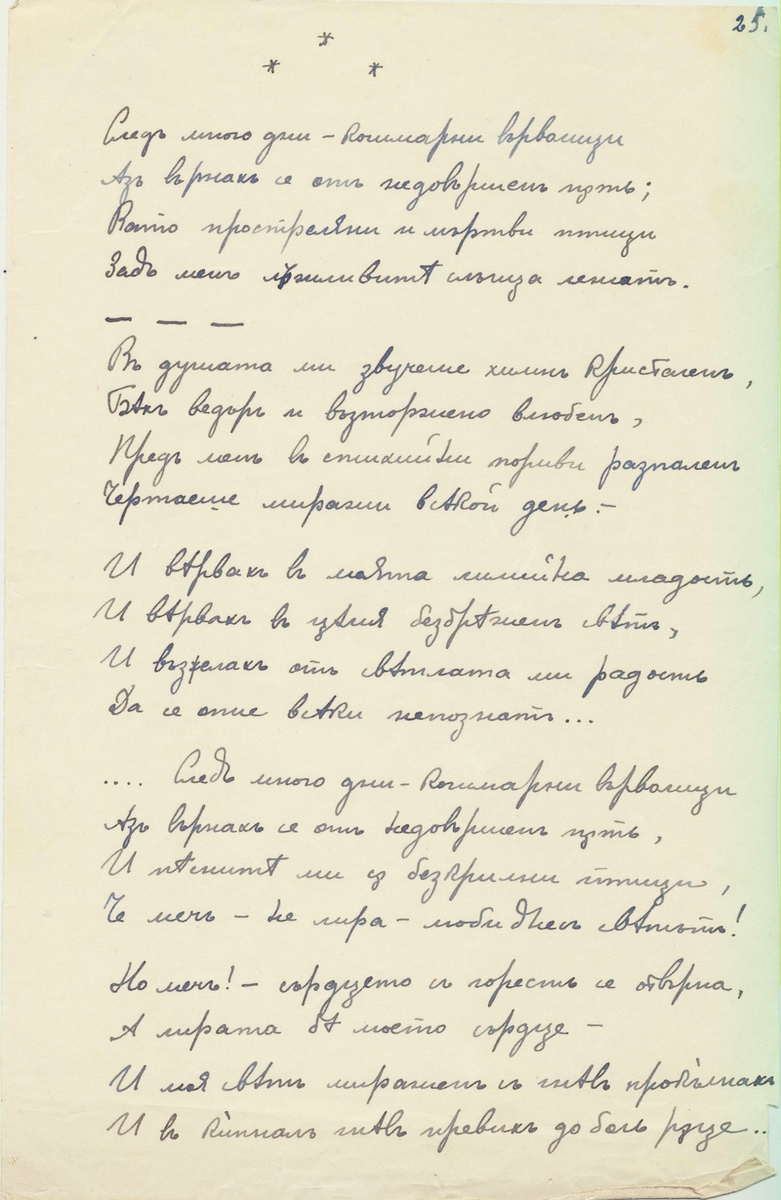 25.
* * *
Следъ много дни – кошмарни върволици
Азъ върнахъ се отъ недовършенъ пѫть;
Като простреляни и мъртви птици
Задъ менъ лъжливитѣ слънца лежатъ.
— — —
Въ душата ми звучеше химнъ кристаленъ,
Бѣхъ ведъръ и възторжено влюбенъ,
Предъ менъ въ стихийни пориви разпаленъ
Чертаеше миражи всѣкой день. –
И вѣрвахъ въ моята лилийна младость,
И вѣрвахъ въ цѣлия безбрѣженъ свѣтъ,
И възжелахъ отъ свѣтлата ми радость
Да се опие всѣки непознатъ...
.... Следъ много дни – кошмарни върволици
Азъ върнахъ се отъ недовършенъ пѫть,
И пѣснитѣ ми сѫ безкрилни птици,
Че мечъ – не лира – люби днесъ свѣтътъ!
Но мечъ! – сърдцето съ горесть се отвърна,
А лирата бѣ моето сърдце –
И моя свѣтъ миражен съ гнѣвъ прокълнахъ
И въ гнѣвъ превихъ до боль рѫце..